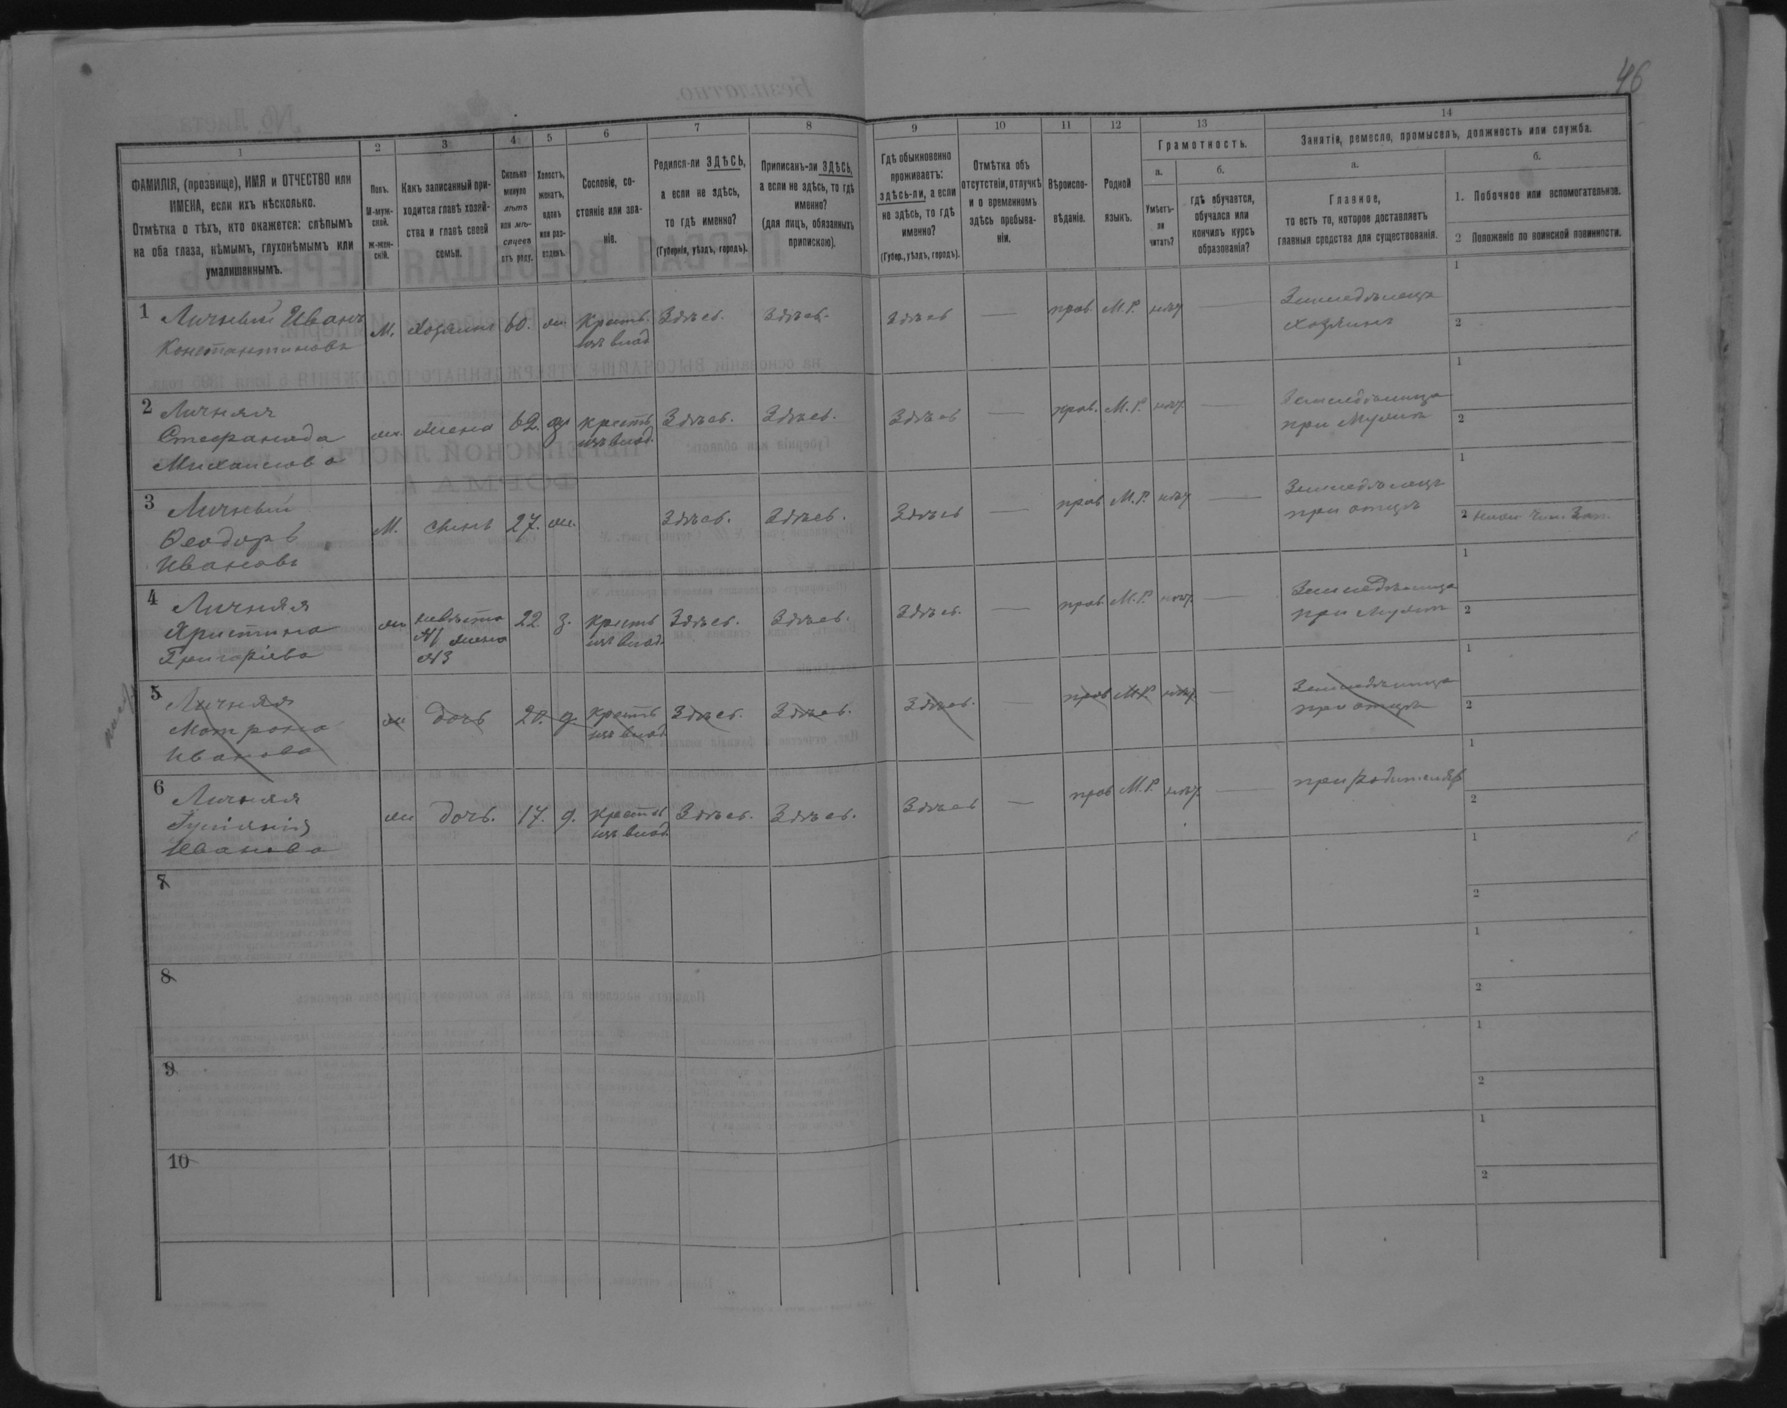 46
1
2
3
4
5
6
7
8
9
10
11
12
13
14
ФАМИЛІЯ, (прозвище), ИМЯ и ОТЧЕСТВО или
ИМЕНА, если ихъ нѣсколько.
Отмѣтка о тѣхъ, кто окажется: слѣпымъ
на оба глаза, нѣмымъ, глухонѣмымъ или
умалишеннымъ.
Полъ.
М-муж-
ской.
Ж-жен-
скій.
Какъ записанный при-
ходится главѣ хозяй-
ства и главѣ своей
семьи.
Сколько
минуло
лѣтъ
или мѣ-
сяцевъ
отъ роду.
Холостъ,
женатъ,
вдовъ
или раз-
веденъ.
Сословіе, со-
стояніе или зва-
ніе.
Родился-ли ЗДѢСЬ,
а если не здѣсь,
то гдѣ именно?
(Губернія, уѣздъ, городъ).
Приписанъ-ли ЗДѢСЬ,
а если не здѣсь, то гдѣ
именно?
(для лицъ, обязанныхъ
припискою).
Гдѣ обыкновенно
проживаетъ:
здѣсь-ли, а если
не здѣсь, то гдѣ
именно?
(Губер., уѣздъ, городъ).
Отмѣтка объ
отсутствіи, отлучкѣ
и о временномъ
здѣсь пребыва-
ніи.
Вѣроиспо-
вѣданіе.
Родной
языкъ.
Грамотность.
а.
Умѣетъ-
ли
читать?
б.
гдѣ обучается,
обучался или
кончилъ курсъ
образованія?
Занятіе, ремесло, промыселъ, должность или служба.
а.
Главное,
то есть то, которое доставляетъ
главныя средства для существованія.
б.
1. Побочное или вспомогательное.
2 Положеніе по воинской повинности.
1 Личный Иванъ
Константиновъ
М. Хозяинъ 60. ж. Крестъ.
изъ влад. Здѣсь. Здѣсь. Здѣсь — прав М.Р. нѣт — Земледѣлецъ
хозяинъ
1
2
2 Личняя
Стефанида
Михаилова
ж. жена 62. з. крестъ
изъ влад. Здѣсь. Здѣсь. Здѣсь — прав. М.Р. нѣт — Земледѣлица
при мужѣ
1
2
3 Личный
Ѳеодоръ
Ивановъ
М. сынъ 27. ж. Здѣсь. Здѣсь. Здѣсь — прав М.Р. нѣт — Земледѣлецъ
при отцѣ
1
2
4 Личняя
Христина
Григоріева
ж. невѣста
№1 жена
№3 22. з. крестъ
изъ влад. Здѣсь. Здѣсь. Здѣсь. — прав. М.Р. нѣт. — Земледѣлица
при мужѣ
1
2
5 Личняя
Матрона
Иванова
ж дочь 20. д. крестъ
изъ влад Здѣсь. Здѣсь. Здѣсь. — прав М.Р. нѣт. — Земледѣлица
при отцѣ
1
2
6 Личняя
Иванова
ж дочь. 17. д. крестъ
изъ влад Здѣсь. Здѣсь. Здѣсь — прав М.Р. нѣт. — при родителяхъ
1
2
7
1
2
8
1
2
9
1
2
10
1
2